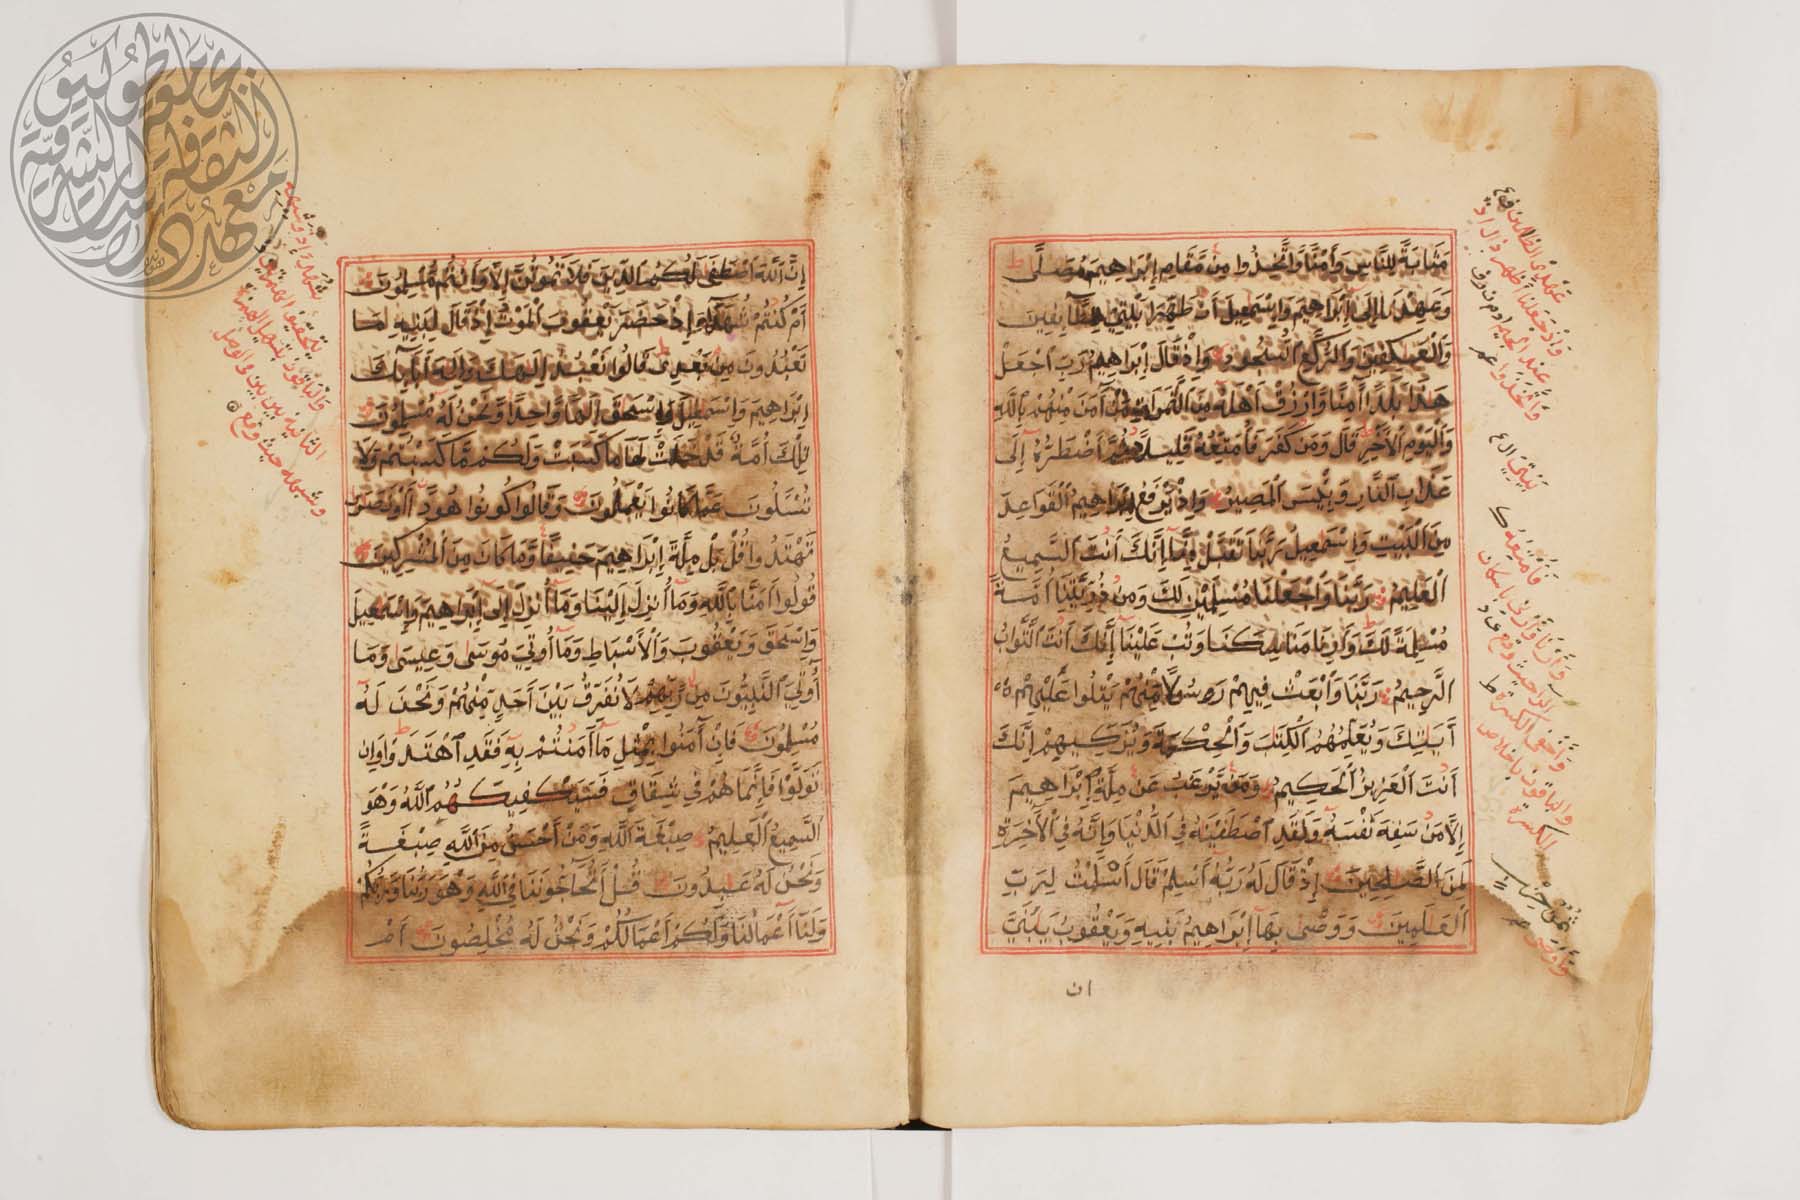 مثابة للناس وأمنا واتخذوا من مقام إبراهيم مصلى
وعهدنا إلى إبراهيم وإسمعيل أن طهرا بيتي للطائفين
والعكفين والركع السجود وإذ قال إبراهيم رب اجعل
هذا بلدا آمنا وارزق أهله من الثمرات من آمن منهم بالله
واليوم الآخر قال ومن كفر فأمتعه قليلا ثم أضطره إلى
عذاب النار وبئس المصير وإذ يرفع إبراهيم القواعد
من البيت وإسمعيل ربنا تقبل منا إنك أنت السميع
العليم ربنا واجعلنا مسلمين لك ومن ذريتنا أمة
مسلمة لك وأرنا مناسكنا وتب علينا إنك أنت التواب
الرحيم ربنا وابعث فيهم رسولا منهم يتلوا عليهم
آيتك ويعلمهم الكتب والحكمة ويزكيهم إنك
أنت العزيز الحكيم ومن يرغب عن ملة إبراهيم
إلا من سفه نفسه ولقد اصطفينه في الدنيا وإنه في الآخرة
لمن الصلحين إذ قال له ربه أسلم قال أسلمت لرب
العلمين ووصى بها إبراهيم بنيه ويعقوب يبني
ان
عهدي الظالمين
وإذ جعلنا
واتخذوا
بيتي
فأمتعه
إن الله اصطفى لكم الدين فلا تموتن إلا وأنتم مسلمون
أم كنتم شهداء إذ حضر يعقوب الموت إذ قال لبنيه ما
تعبدون من بعدي قالوا نعبد إلهك وإله آبائك
إبراهيم وإسمعيل وإسحق إلها واحدا ونحن له مسلمون
تلك أمة قد خلت لها ما كسبت ولكم ما كسبتم ولا
تسئلون عما كانوا يعملون وقالوا كونوا هودا أو نصرى
تهتدوا قل بل ملة إبراهيم حنيفا وما كان من المشركين
قولوا آمنا بالله وما أنزل إلينا وما أنزل إلى إبراهيم وإسمعيل
وإسحق ويعقوب والأسباط وما أوتي موسى وعيسى وما
أوتي النبيون من ربهم لا نفرق بين أحد منهم ونحن له
مسلمون فإن آمنوا بمثل ما آمنتم به فقد اهتدوا وإن
تولوا فإنما هم في شقاق فسيكفيكهم الله وهو
السميع العليم صبغة الله ومن أحسن من الله صبغة
ونحن له عبدون قل أتحاجوننا في الله وهو ربنا وربكم
ولنا أعمالنا ولكم أعمالكم ونحن له مخلصون أم